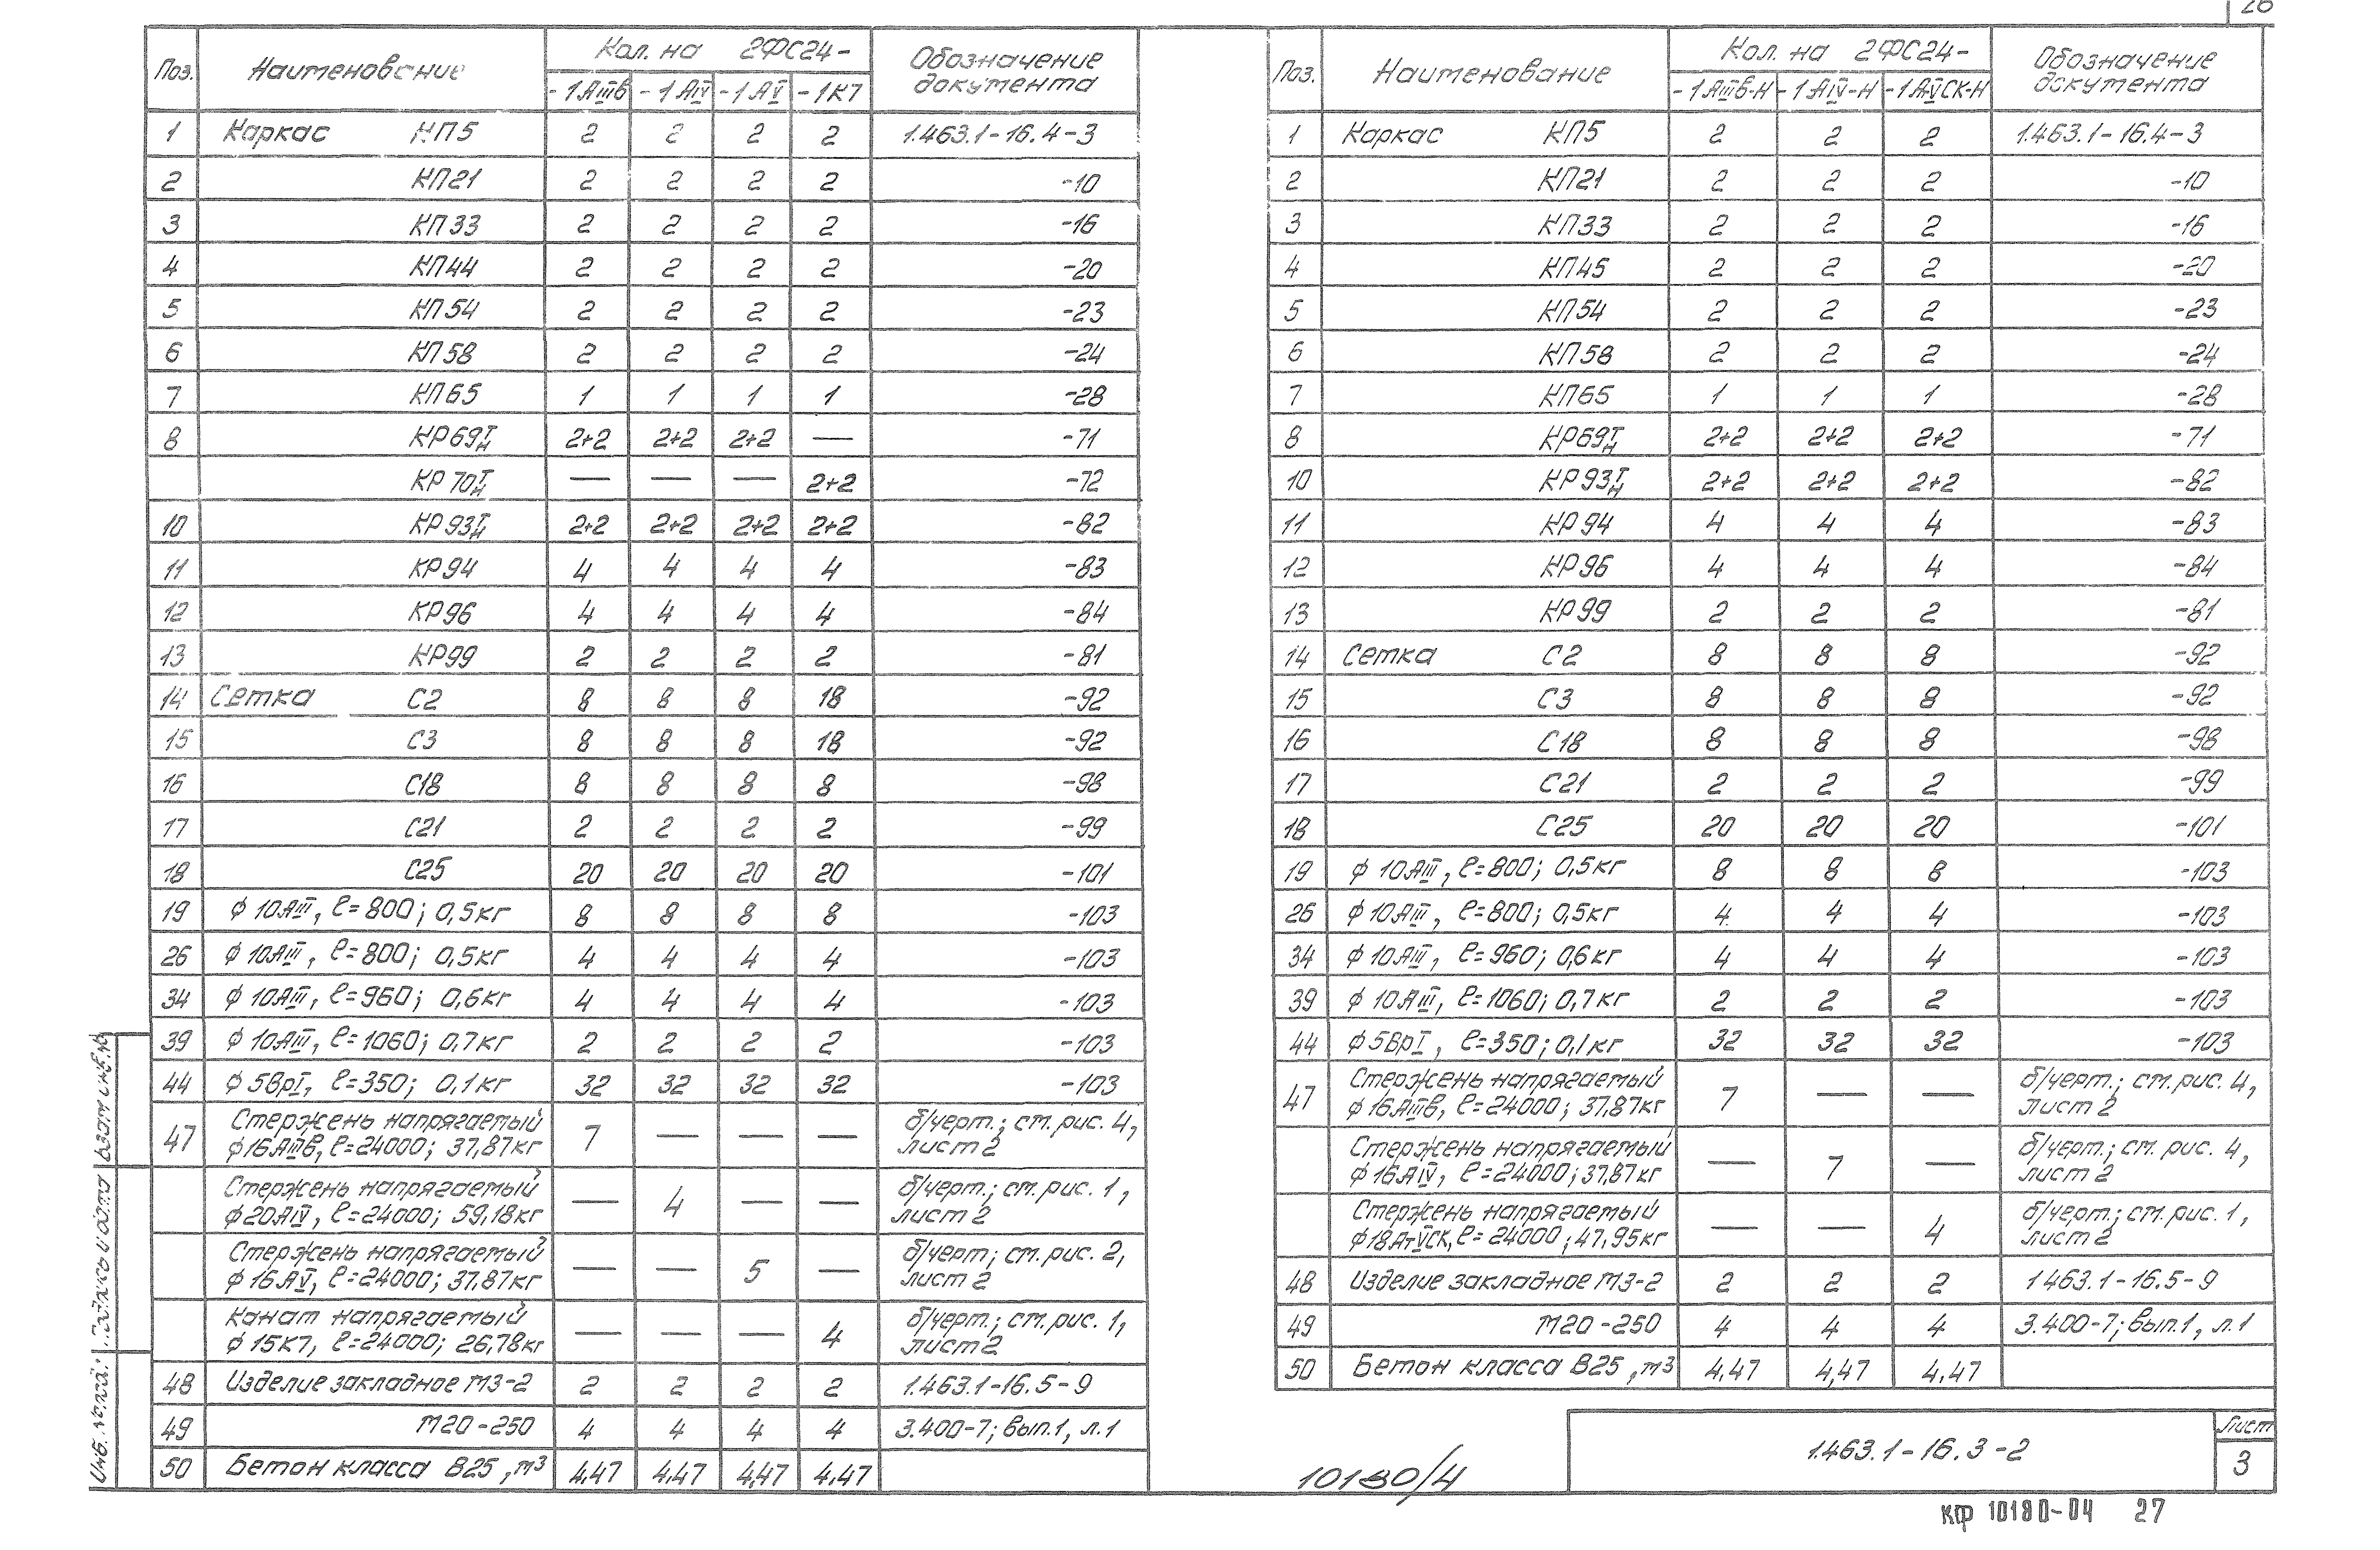 26
Поз. Наименование Кол. на 2ФС24- Обозначение документа
-1АIIIв -1АIV -1АV -1К7
1 Каркас КП5 2 2 2 2 1.463.1-16.4-3
2 КП21 2 2 2 2 -10
3 КП33 2 2 2 2 -16
4 КП44 2 2 2 2 -20
5 КП54 2 2 2 2 -23
6 КП58 2 2 2 2 -24
7 КП65 1 1 1 1 -28
8 КР69Т/Н 2+2 2+2 2+2 — -71
КР70Т/Н — — — 2+2 -72
10 КР93Т/Н 2+2 2+2 2+2 2+2 -82
11 КР94 4 4 4 4 -83
12 КР96 4 4 4 4 -84
13 КР99 2 2 2 2 -81
14 Сетка С2 8 8 8 18 -92
15 С3 8 8 8 18 -92
16 С18 8 8 8 8 -98
17 С21 2 2 2 2 -99
18 С25 20 20 20 20 -101
19 ф 10АIII, ℓ=800; 0,5кг 8 8 8 8 -103
26 ф 10АIII, ℓ=800; 0,5кг 4 4 4 4 -103
34 ф 10АIII, ℓ=960; 0,6кг 4 4 4 4 -103
39 ф 10АIII, ℓ=1060; 0,7кг 2 2 2 2 -103
44 ф 5ВрI, ℓ=350; 0,1кг 32 32 32 32 -103
47 Стержень напрягаемый
ф16АIIIв, ℓ=24000; 37,87кг 7 — — — б/черт.; см. рис. 4,
лист 2
Стержень напрягаемый
ф20АIV, ℓ=24000; 59,18кг — 4 — — б/черт.; см. рис. 1,
лист 2
Стержень напрягаемый
ф 16АV, ℓ=24000; 37.87кг — — 5 — б/черт; см. рис. 2,
лист 2
Канат напрягаемый
ф 15К7, ℓ=24000; 26,78кг — — — 4 б/черт.; см. рис. 1,
лист 2
48 Изделие закладное МЗ-2 2 2 2 2 1.463.1-16.5-9
49 М20-250 4 4 4 4 3.400-7; вып.1, л.1
50 Бетон класса В25, м3 4,47 4,47 4,47 4,47
Поз. Наименование Кол. на 2ФС24- Обозначение документа
-1АIIIв-Н -1АIV-Н -1АтVСК-Н
1 Каркас КП5 2 2 2 1.463.1-16.4-3
2 КП21 2 2 2 -10
3 КП33 2 2 2 -16
4 КП45 2 2 2 -20
5 КП54 2 2 2 -23
6 КП58 2 2 2 -24
7 КП65 1 1 1 -28
8 КР69Т/Н 2+2 2+2 2+2 -71
10 КР93Т/Н 2+2 2+2 2+2 -82
11 КР94 4 4 4 -83
12 КР96 4 4 4 -84
13 КР99 2 2 2 -81
14 Сетка С2 8 8 8 -92
15 С3 8 8 8 -92
16 С18 8 8 8 -98
17 С21 2 2 2 -99
18 С25 20 20 20 -101
19 ф 10АIII, ℓ=800; 0,5кг 8 8 8 -103
26 ф 10АIII, ℓ=800; 0,5кг 4 4 4 -103
34 ф 10АIII, ℓ=960; 0,6кг 4 4 4 -103
39 ф 10АIII, ℓ=1060; 0,7кг 2 2 2 -103
44 ф5ВрI, ℓ=350; 0,1кг 32 32 32 -103
47 Стержень напрягаемый
ф16АIIIв, ℓ=24000; 37,87кг 7 — — б/черт.; см. рис. 4,
лист 2
Стержень напрягаемый
ф 16АIV, ℓ=24000; 37,87кг — 7 — б/черт.; см. рис. 4,
лист 2
Стержень напрягаемый
ф18АтVСК, ℓ=24000; 47,95кг — — 4 б/черт.; см. рис. 1,
лист 2
48 Изделие закладное МЗ-2 2 2 2 1463.1-16.5-9
49 М20-250 4 4 4 3.400-7; вып.1, л.1
50 Бетон класса В25, м3 4,47 4,47 4,47
1.463.1-16.3-2
Лист
3
10180/4
КФ 10180-04 27